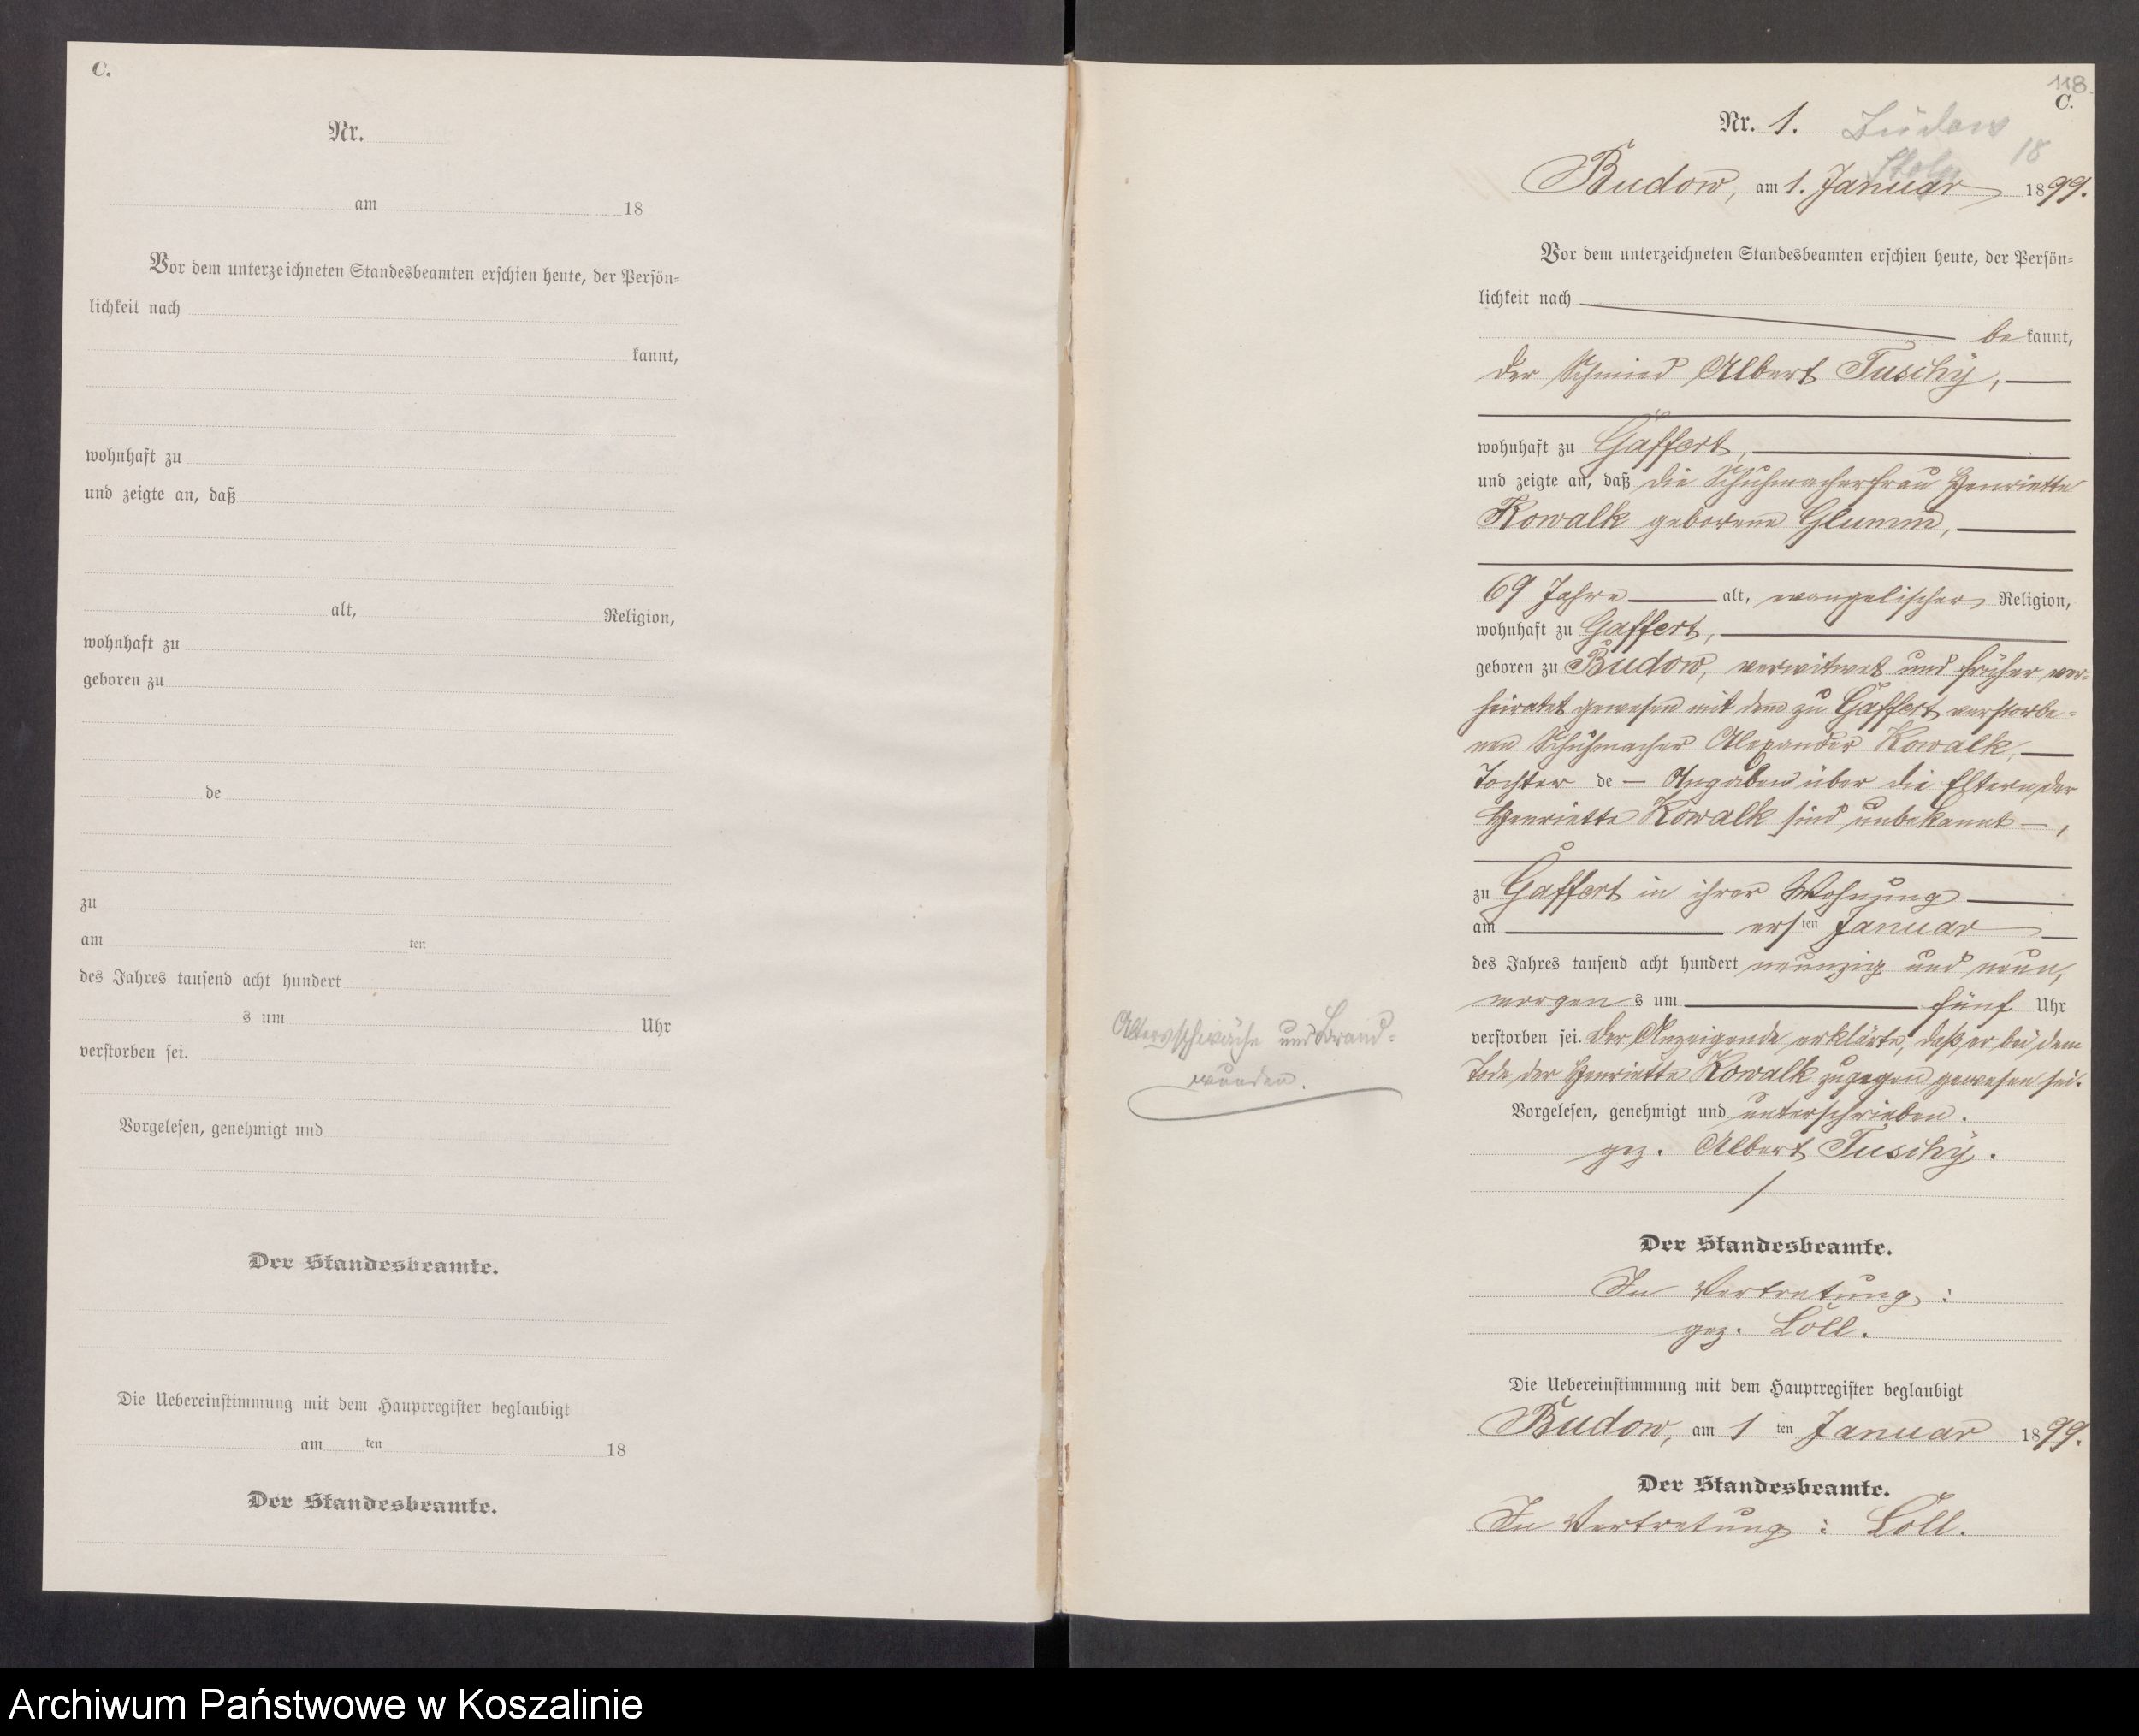 C.
Nr.
am 18
Vor dem unterzeichneten Standesbeamten erschien heute, der Persön-
lichkeit nach
kannt,
wohnhaft zu
und zeigte an, daß
alt, Religion,
wohnhaft zu
geboren zu
de
zu
am ten
des Jahres tausend acht hundert
s um Uhr
verstorben sei.
Vorgelesen, genehmigt und
Der Standesbeamte.
Die Uebereinstimmung mit dem Hauptregister beglaubigt
am ten 18
Der Standesbeamte.
118.
C.
Nr. 1. Büdow
Stolp 18
Budow, am 1. Januar 1899.
Vor dem unterzeichneten Standesbeamten erschien heute, der Persön-
lichkeit nach
be kannt,
der Schmied Albert Tuschÿ,
wohnhaft zu Gaffert,
und zeigte an, daß die Schuhmacherfrau Henriette
Kowalk geborene Glumm,
69 Jahre alt, evangelischer Religion,
wohnhaft zu Gaffert,
geboren zu Budow, verwitwet und früher ver-
heiratet gewesen mit dem zu Gaffert verstorbe-
nen Schuhmacher Alexander Kowalk,
Tochter de — Angaben über die Eltern der
Henriette Kowalk sind unbekannt —,
zu Gaffert in ihrer Wohnung
am ersten Januar
des Jahres tausend acht hundert neunzig und neun,
morgen s um fünf Uhr
verstorben sei. Der Anzeigende erklärte, daß er bei dem
Tode der Henriette Kowalk zugegen gewesen sei.
Vorgelesen, genehmigt und unterschrieben.
gez. Albert Tuschÿ.
Der Standesbeamte.
In Vertretung:
gez. Löll.
Die Uebereinstimmung mit dem Hauptregister beglaubigt
Budow, am 1 ten Januar 1899.
Der Standesbeamte.
In Vertretung: Löll.
Altersschwäche und Brand-
wunden.
Archiwum Państwowe w Koszalinie